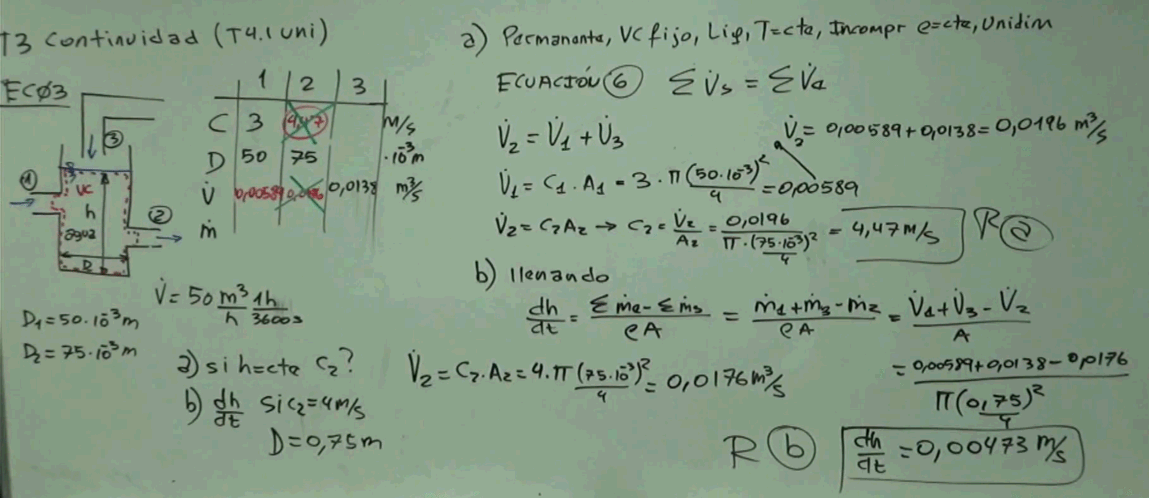 T3 Continuidad (T4.1 uni)
ECØ3
③
①
VC
h
agua
②
D
1 2 3
C 3 4,47 m/s
D 50 75 ·10⁻³m
V̇ 0,00589 0,0196 0,0138 m³/s
ṁ
V̇ = 50 m³/h 1h/3600s
D₁=50·10⁻³m
D₂=75·10⁻³m
a) si h=cte C₂?
b) dh/dt si c₂=4m/s
D=0,75m
a) Permanente, VC fijo, Liq, T=cte, Incompr ρ=cte, Unidim
ECUACIÓN ⑥ Σ V̇s = Σ V̇e
V̇₂ = V̇₁ + V̇₃
V̇₂ = 0,00589+0,0138=0,0196 m³/s
V̇₁ = C₁·A₁ = 3·π(50·10⁻³)²/4 = 0,00589
V̇₂ = C₂A₂ → C₂ = V̇₂/A₂ = 0,0196/(π·(75·10⁻³)²/4) = 4,47 m/s R ⓐ
b) llenando
dh/dt = (Σ ṁe - Σ ṁs)/(ρA) = (ṁ₁+ṁ₃-ṁ₂)/(ρA) = (V̇₁+V̇₃-V̇₂)/A
V̇₂ = C₂·A₂ = 4·π(75·10⁻³)²/4 = 0,0176 m³/s
= (0,00589+0,0138-0,0176)/(π(0,75)²/4)
R ⓑ dh/dt = 0,00473 m/s